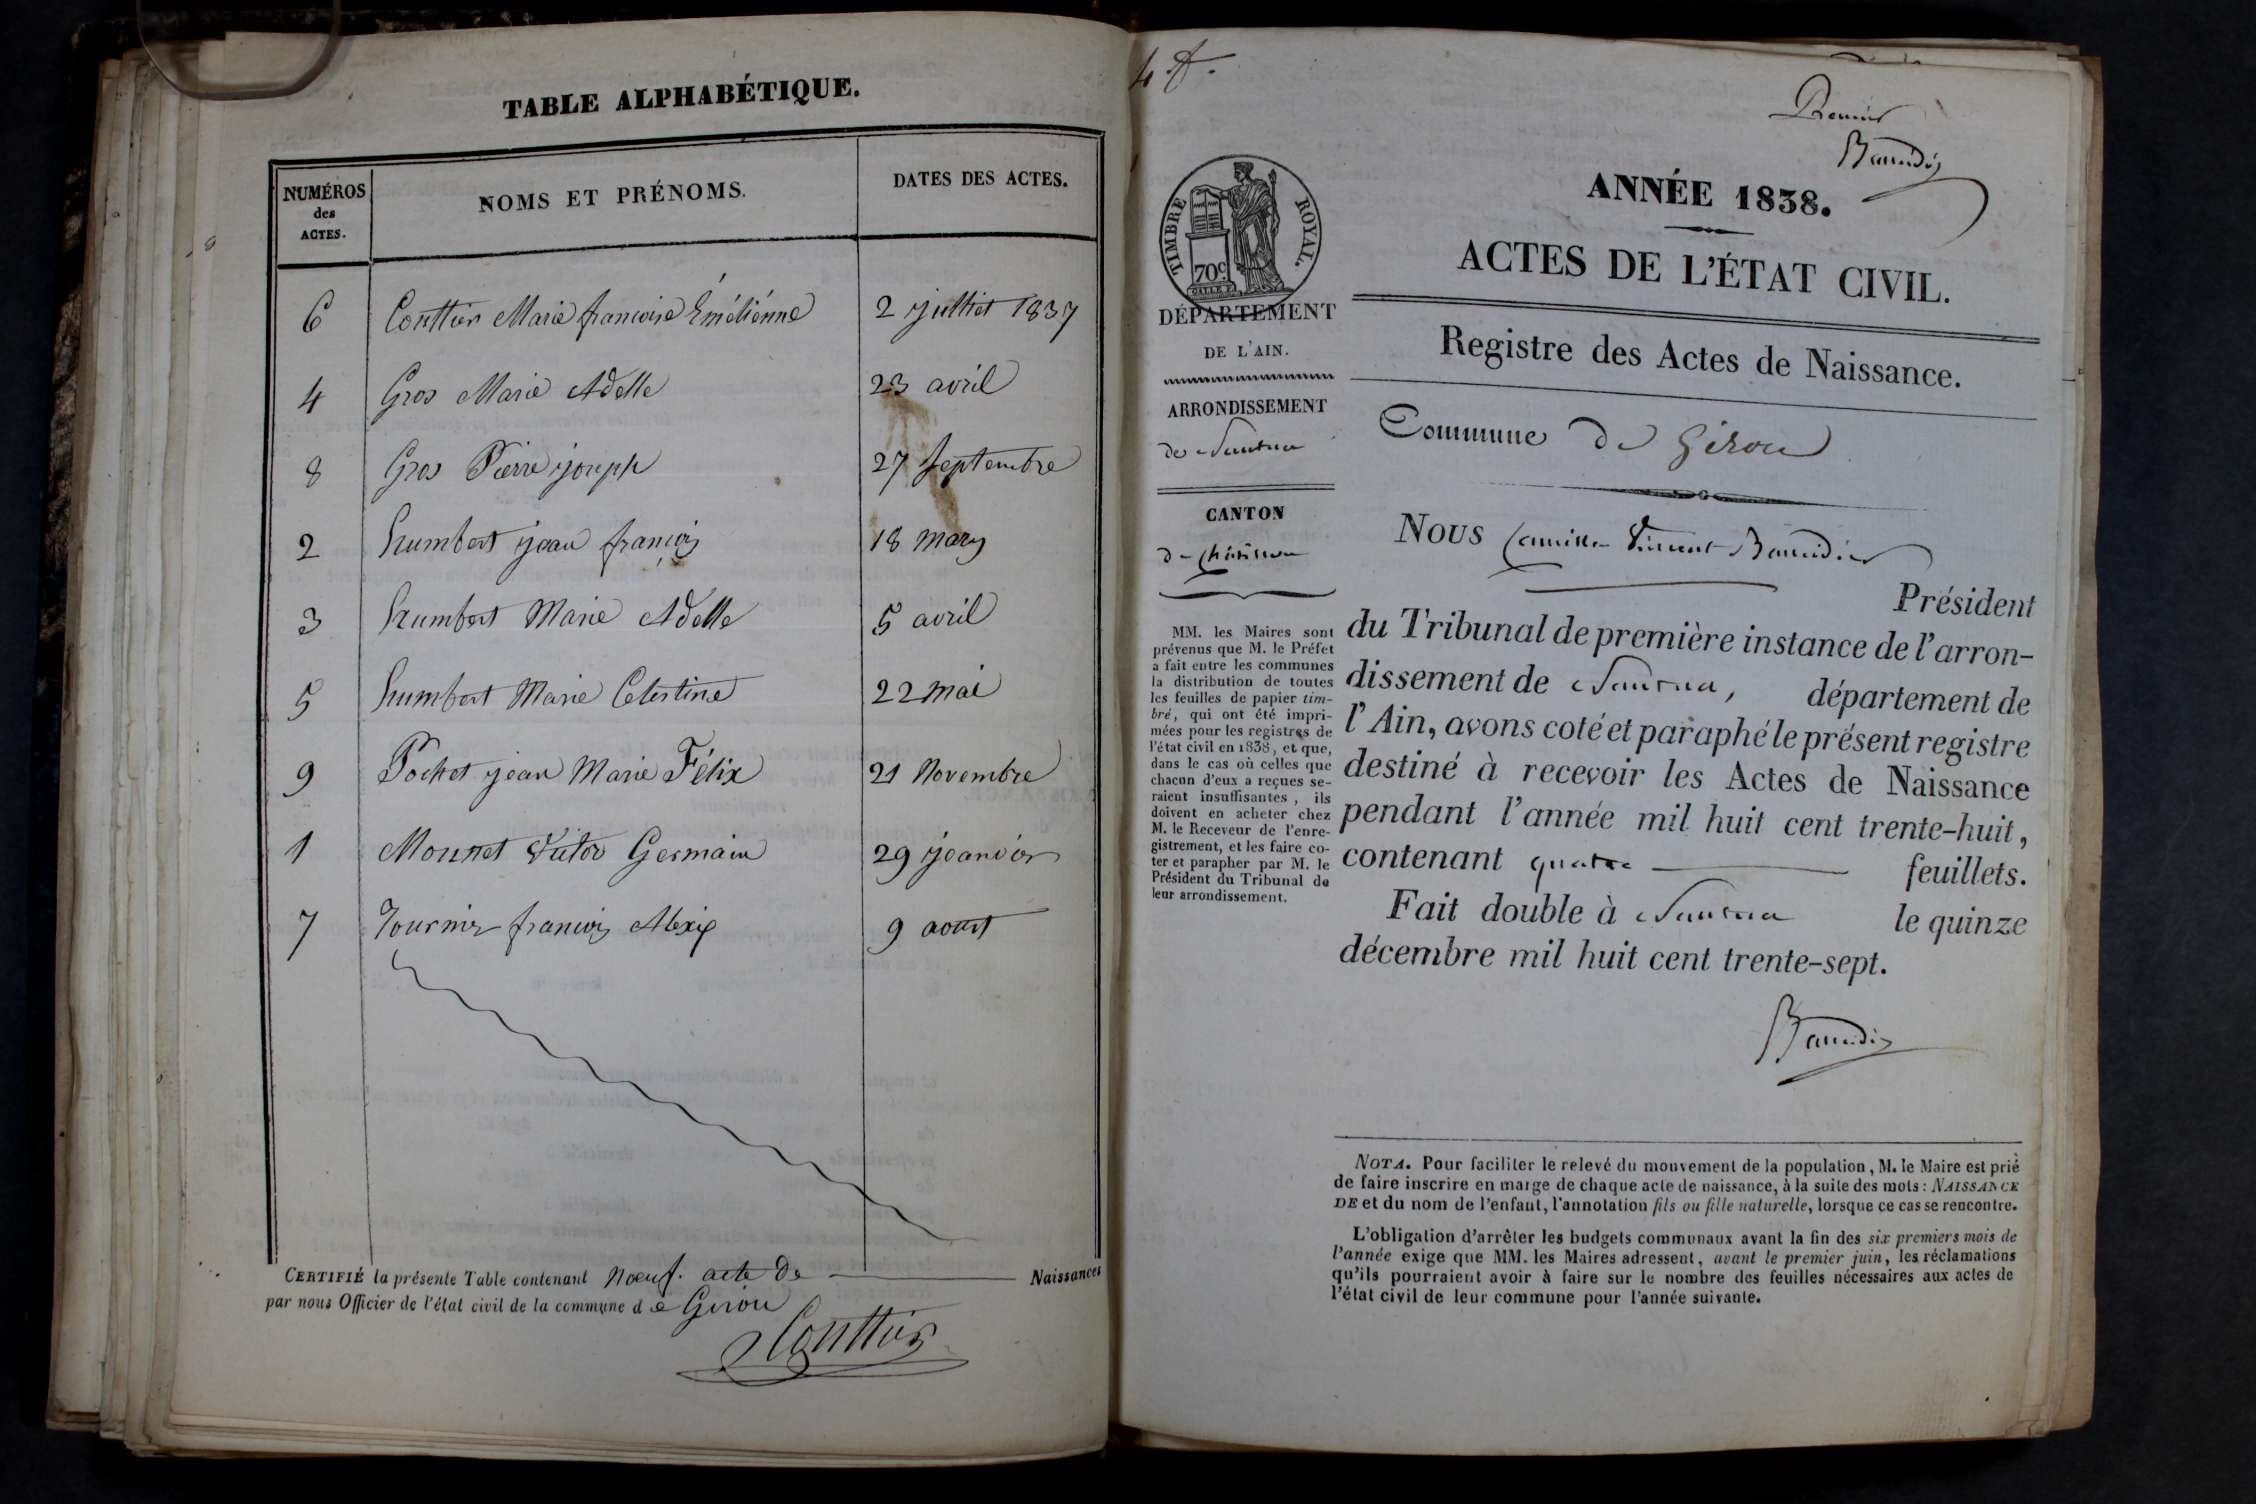 TABLE ALPHABÉTIQUE.
NUMÉROS des ACTES. NOMS ET PRÉNOMS. DATES DES ACTES.
6 Couttier Marie francoise Éméliénne 2 juilliet 1837
4 Gros Marie Adelle 23 avril
8 Gros Pierre joseph 27 Septembre
2 humbert jean françois 18 Mars
3 humbert Marie Adelle 5 avril
5 humbert Marie Celestine 22 Mai
9 Pochet jean Marie Félix 21 Novembre
1 Mounet Victor Germain 29 jeanvier
7 Tournier francois Alexis 9 aoust
CERTIFIÉ la présente Table contenant Nœuf. acte de Naissances
par nous Officier de l'état civil de la commune de Giron
Couttier
4 f.
Premier
Baudin
TIMBRE ROYAL.
70c
DÉPARTEMENT
DE L'AIN.
ARRONDISSEMENT
de Nantua
CANTON
de Châtillon
MM. les Maires sont
prévenus que M. le Préfet
a fait entre les communes
la distribution de toutes
les feuilles de papier tim-
bré, qui ont été impri-
mées pour les registres de
l'état civil en 1838, et que,
dans le cas où celles que
chacun d'eux a reçues se-
raient insuffisantes, ils
doivent en acheter chez
M. le Receveur de l'enre-
gistrement, et les faire co-
ter et parapher par M. le
Président du Tribunal de
leur arrondissement.
ANNÉE 1838.
ACTES DE L'ÉTAT CIVIL.
Registre des Actes de Naissance.
Commune de Giron
Nous Camille Vincent
Président
du Tribunal de première instance de l'arron-
dissement de Nantua, département de
l'Ain, avons coté et paraphé le présent registre
destiné à recevoir les Actes de Naissance
pendant l'année mil huit cent trente-huit,
contenant quatre feuillets.
Fait double à Nantua le quinze
décembre mil huit cent trente-sept.
NOTA. Pour faciliter le relevé du mouvement de la population, M. le Maire est prié
de faire inscrire en marge de chaque acte de naissance, à la suite des mots: NAISSANCE
DE et du nom de l'enfant, l'annotation fils ou fille naturelle, lorsque ce cas se rencontre.
L'obligation d'arrêter les budgets communaux avant la fin des six premiers mois de
l'année exige que MM. les Maires adressent, avant le premier juin, les réclamations
qu'ils pourraient avoir à faire sur le nombre des feuilles nécessaires aux actes de
l'état civil de leur commune pour l'année suivante.